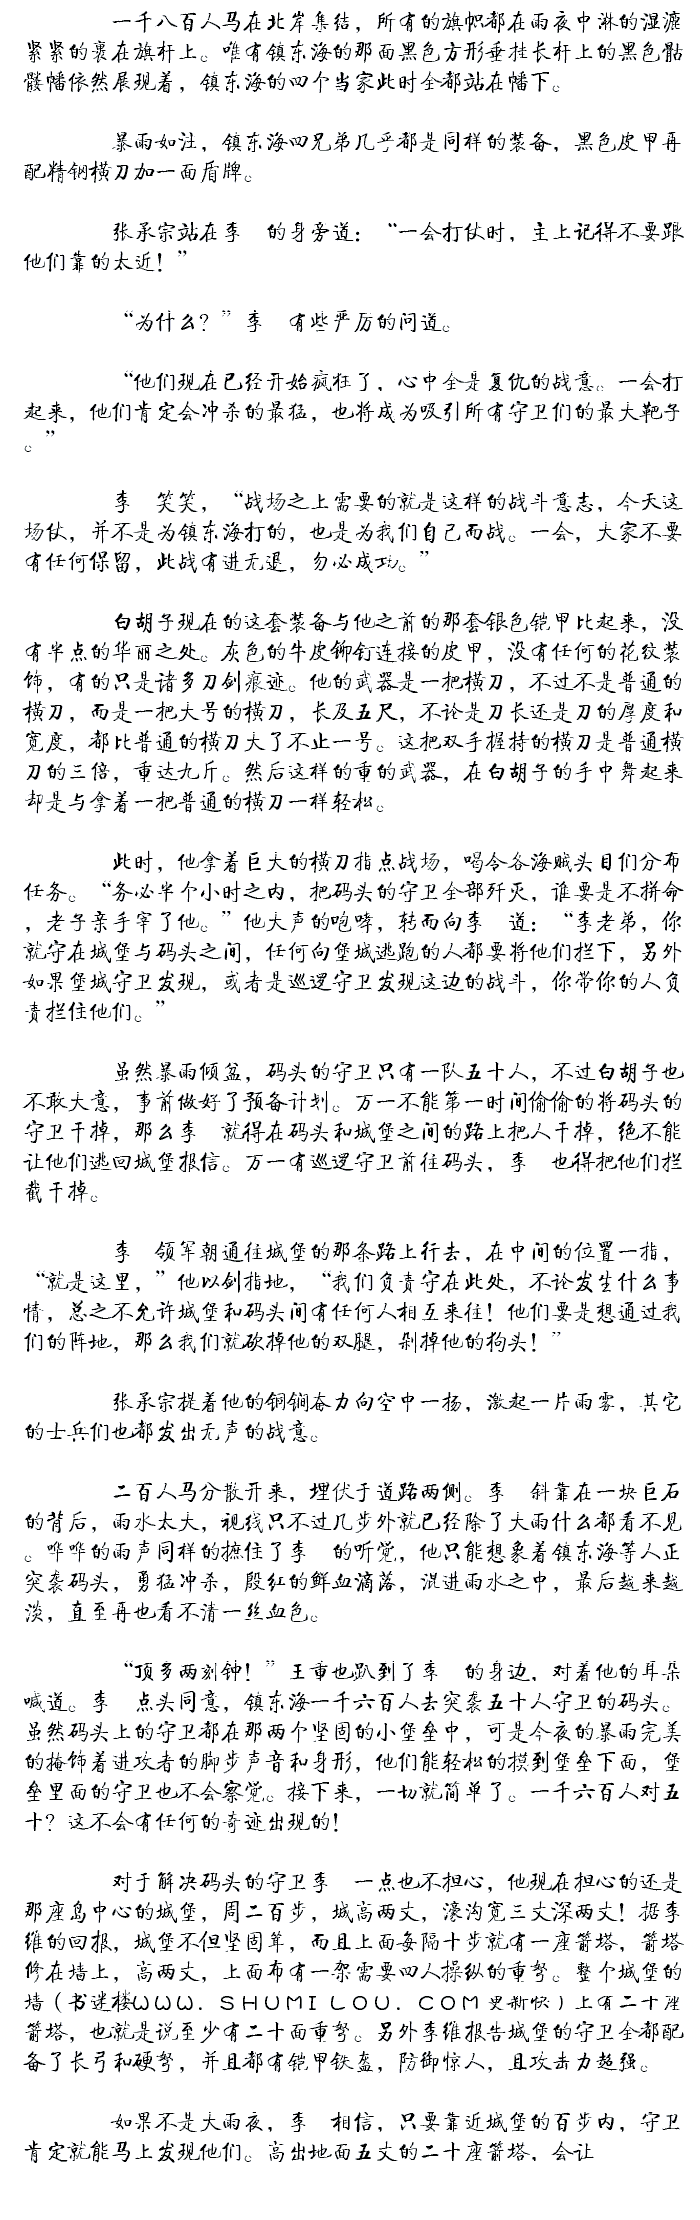 一千八百人马在北岸集结，所有的旗帜都在雨夜中淋的湿漉
紧紧的裹在旗杆上。唯有镇东海的那面黑色方形垂挂长杆上的黑色骷
髅幡依然展现着，镇东海的四个当家此时全都站在幡下。
暴雨如注，镇东海四兄弟几乎都是同样的装备，黑色皮甲再
配精钢横刀加一面盾牌。
张承宗站在李　的身旁道：“一会打仗时，主上记得不要跟
他们靠的太近！”
“为什么？”李　有些严厉的问道。
“他们现在已经开始疯狂了，心中全是复仇的战意。一会打
起来，他们肯定会冲杀的最猛，也将成为吸引所有守卫们的最大靶子
。”
李　笑笑，“战场之上需要的就是这样的战斗意志，今天这
场仗，并不是为镇东海打的，也是为我们自己而战。一会，大家不要
有任何保留，此战有进无退，勿必成功。”
白胡子现在的这套装备与他之前的那套银色铠甲比起来，没
有半点的华丽之处。灰色的牛皮铆钉连接的皮甲，没有任何的花纹装
饰，有的只是诸多刀剑痕迹。他的武器是一把横刀，不过不是普通的
横刀，而是一把大号的横刀，长及五尺，不论是刀长还是刀的厚度和
宽度，都比普通的横刀大了不止一号。这把双手握持的横刀是普通横
刀的三倍，重达九斤。然后这样的重的武器，在白胡子的手中舞起来
却是与拿着一把普通的横刀一样轻松。
此时，他拿着巨大的横刀指点战场，喝令各海贼头目们分布
任务。“务必半个小时之内，把码头的守卫全部歼灭，谁要是不拼命
，老子亲手宰了他。”他大声的咆哮，转而向李　道：“李老弟，你
就守在城堡与码头之间，任何向堡城逃跑的人都要将他们拦下，另外
如果堡城守卫发现，或者是巡逻守卫发现这边的战斗，你带你的人负
责拦住他们。”
虽然暴雨倾盆，码头的守卫只有一队五十人，不过白胡子也
不敢大意，事前做好了预备计划。万一不能第一时间偷偷的将码头的
守卫干掉，那么李　就得在码头和城堡之间的路上把人干掉，绝不能
让他们逃回城堡报信。万一有巡逻守卫前往码头，李　也得把他们拦
截干掉。
李　领军朝通往城堡的那条路上行去，在中间的位置一指，
“就是这里，”他以剑指地，“我们负责守在此处，不论发生什么事
情，总之不允许城堡和码头间有任何人相互来往！他们要是想通过我
们的阵地，那么我们就砍掉他的双腿，剁掉他的狗头！”
张承宗提着他的铜锏奋力向空中一扬，激起一片雨雾，其它
的士兵们也都发出无声的战意。
二百人马分散开来，埋伏于道路两侧。李　斜靠在一块巨石
的背后，雨水太大，视线只不过几步外就已经除了大雨什么都看不见
。哗哗的雨声同样的掩住了李　的听觉，他只能想象着镇东海等人正
突袭码头，勇猛冲杀，殷红的鲜血滴落，混进雨水之中，最后越来越
淡，直至再也看不清一丝血色。
“顶多两刻钟！”王重也趴到了李　的身边，对着他的耳朵
喊道。李　点头同意，镇东海一千六百人去突袭五十人守卫的码头。
虽然码头上的守卫都在那两个坚固的小堡垒中，可是今夜的暴雨完美
的掩饰着进攻者的脚步声音和身形，他们能轻松的摸到堡垒下面，堡
垒里面的守卫也不会察觉。接下来，一切就简单了。一千六百人对五
十？这不会有任何的奇迹出现的！
对于解决码头的守卫李　一点也不担心，他现在担心的还是
那座岛中心的城堡，周二百步，城高两丈，濠沟宽三丈深两丈！据李
维的回报，城堡不但坚固茸，而且上面每隔十步就有一座箭塔，箭塔
修在墙上，高两丈，上面布有一架需要四人操纵的重弩。整个城堡的
墙（书迷楼ＷＷＷ．ＳＨＵＭＩＬＯＵ．ＣＯＭ更新快）上有二十座
箭塔，也就是说至少有二十面重弩。另外李维报告城堡的守卫全都配
备了长弓和硬弩，并且都有铠甲铁盔，防御惊人，且攻击力超强。
如果不是大雨夜，李　相信，只要靠近城堡的百步内，守卫
肯定就能马上发现他们。高出地面五丈的二十座箭塔，会让